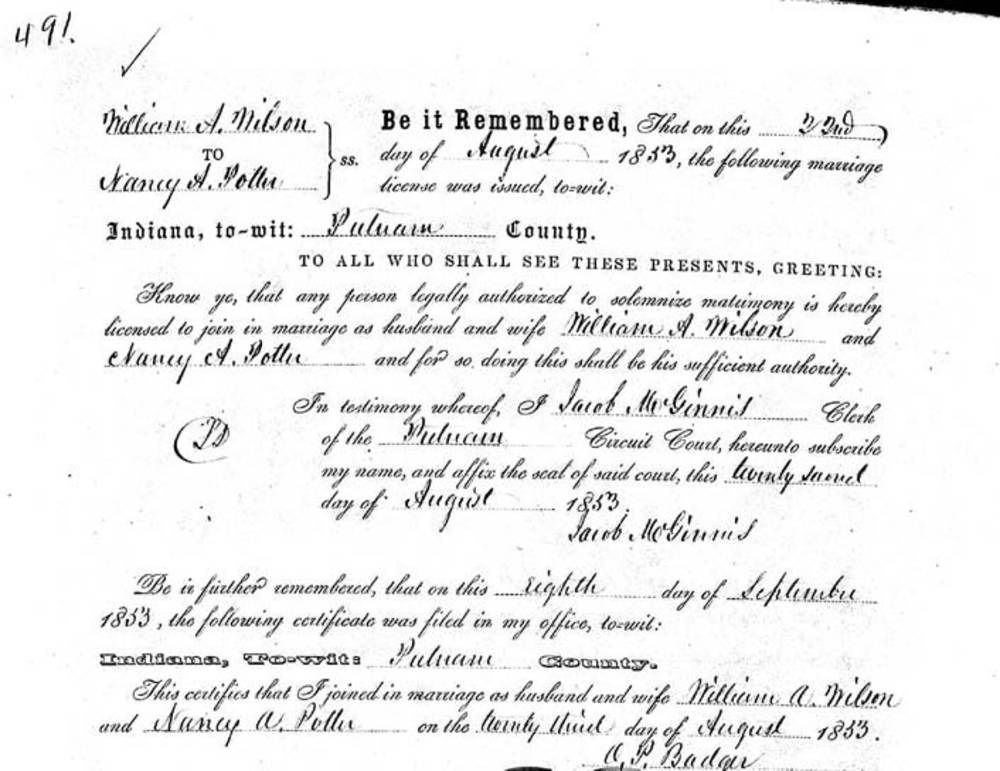 491.
William A. Wilson
TO
Nancy A. Potter
ss.
Be it Remembered, That on this 22nd
day of August 1853, the following marriage
license was issued, to=wit:
Indiana, to-wit: Putnam County.
TO ALL WHO SHALL SEE THESE PRESENTS, GREETING:
Know ye, that any person legally authorized to solemnize matrimony is hereby
licensed to join in marriage as husband and wife William A. Wilson and
Nancy A. Potter and for so doing this shall be his sufficient authority.
In testimony whereof, I Jacob McGinnis Clerk
of the Putnam Circuit Court, hereunto subscribe
my name, and affix the seal of said court, this twenty second
day of August 1853.
Jacob McGinnis
Be it further remembered, that on this eighth day of September
1853, the following certificate was filed in my office, to=wit:
Indiana, To=wit: Putnam County.
This certifies that I joined in marriage as husband and wife William A. Wilson
and Nancy A. Potter on the twenty third day of August 1853.
O. P. Badger